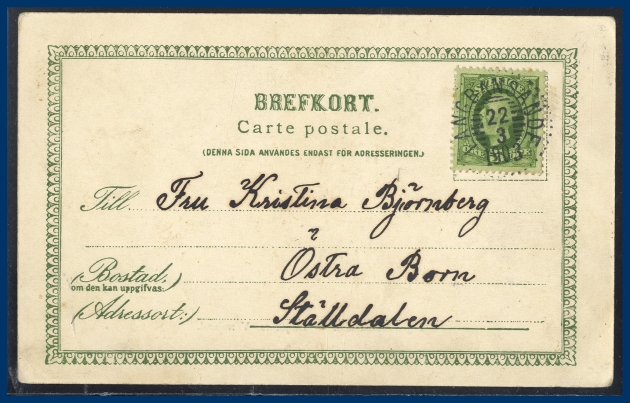 BREFKORT.
Carte postale.
(DENNA SIDA ANVÄNDES ENDAST FÖR ADRESSERINGEN.)
22
3
1903
Till Fru Kristina Björnberg
Östra Born
(Bostad.)
om den kan uppgifvas.
(Adressort:) Ställdalen